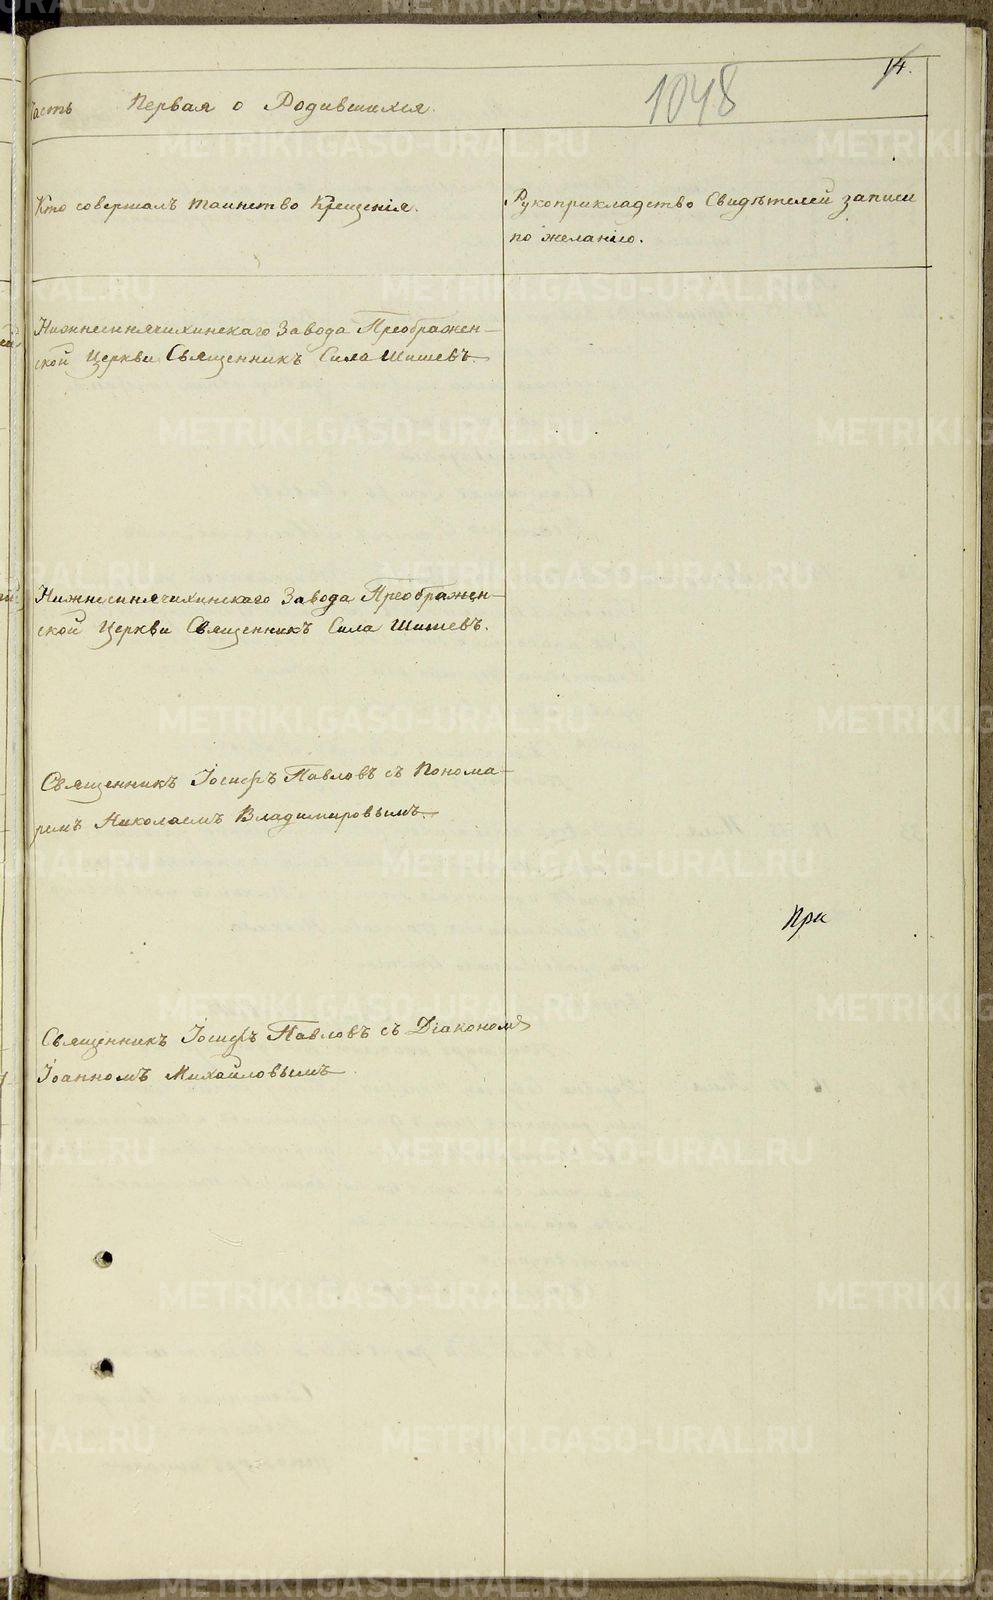 14.
1048
Часть Первая о Родившихся.
Кто совершалъ таинство Крещенія.
Рукоприкладство Свидѣтелей записи
по желанію.
Нижнесинячихинскаго Завода Преображен-
ской Церкви Священникъ Сила Шишевъ.
Нижнесинячихинскаго Завода Преображен-
ской Церкви Священникъ Сила Шишевъ.
Священникъ Іосифъ Павловъ съ Понома-
ремъ Николаемъ Владимировымъ.
При
Священникъ Іосифъ Павловъ съ Діакономъ
Іоанномъ Михайловымъ
METRIKI.GASO-URAL.RU